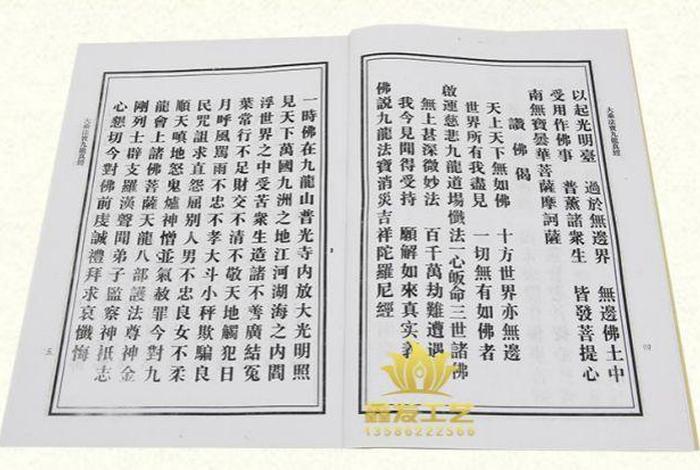 大乘法寶九龍真經
以起光明臺　過於無邊界　無邊佛土中
受用作佛事　普薰諸衆生　皆發菩提心
南無寶曇華菩薩摩訶薩
讚佛偈
天上天下無如佛　十方世界亦無邊
世界所有我盡見　一切無有如佛者
啟運慈悲九龍道場懺法一心皈命三世諸佛
無上甚深微妙法　百千萬劫難遭遇
我今見聞得受持　願解如來真實
佛説九龍法寶消災吉祥陀羅尼經
四
一時佛在九龍山普光寺內放大光明照
見天下萬國九洲之地江河湖海之內閻
浮世界之中受苦衆生造諸不善廣結冤
葉常行不足財交不清不敬天地觸犯日
月呼風罵雨不忠不孝大斗小秤欺騙良
民咒詛求直怨屈別人男不忠良女不柔
順天嗔地怒鬼爐神僧並氣赦罪今對九
龍會上諸佛菩薩天龍八部護法尊神金
剛列士辟支羅漢聲聞弟子監察神祇志
心懇切今對佛前虔誠禮拜求哀懺悔
大乘法寶九龍真經
五
鑫发工艺
13586222566